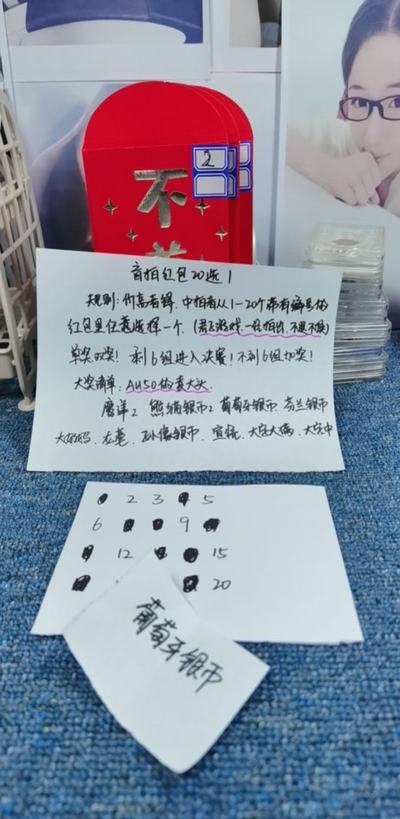 2
不
盲拍红包20选1
规则:价高者得,中拍者从1-20个带有编号的
红包里任意选择一个.(君子游戏.一经拍出,不退不换)
单买叫奖!剩6组进入决赛!不到6组切奖!
大奖清单:AU50
鹰洋2 熊猫银币2 葡萄牙银币 芬兰银币
龙毫、孙像银币、宣统、
2 3 5
6 9
12 15
20
葡萄牙银币